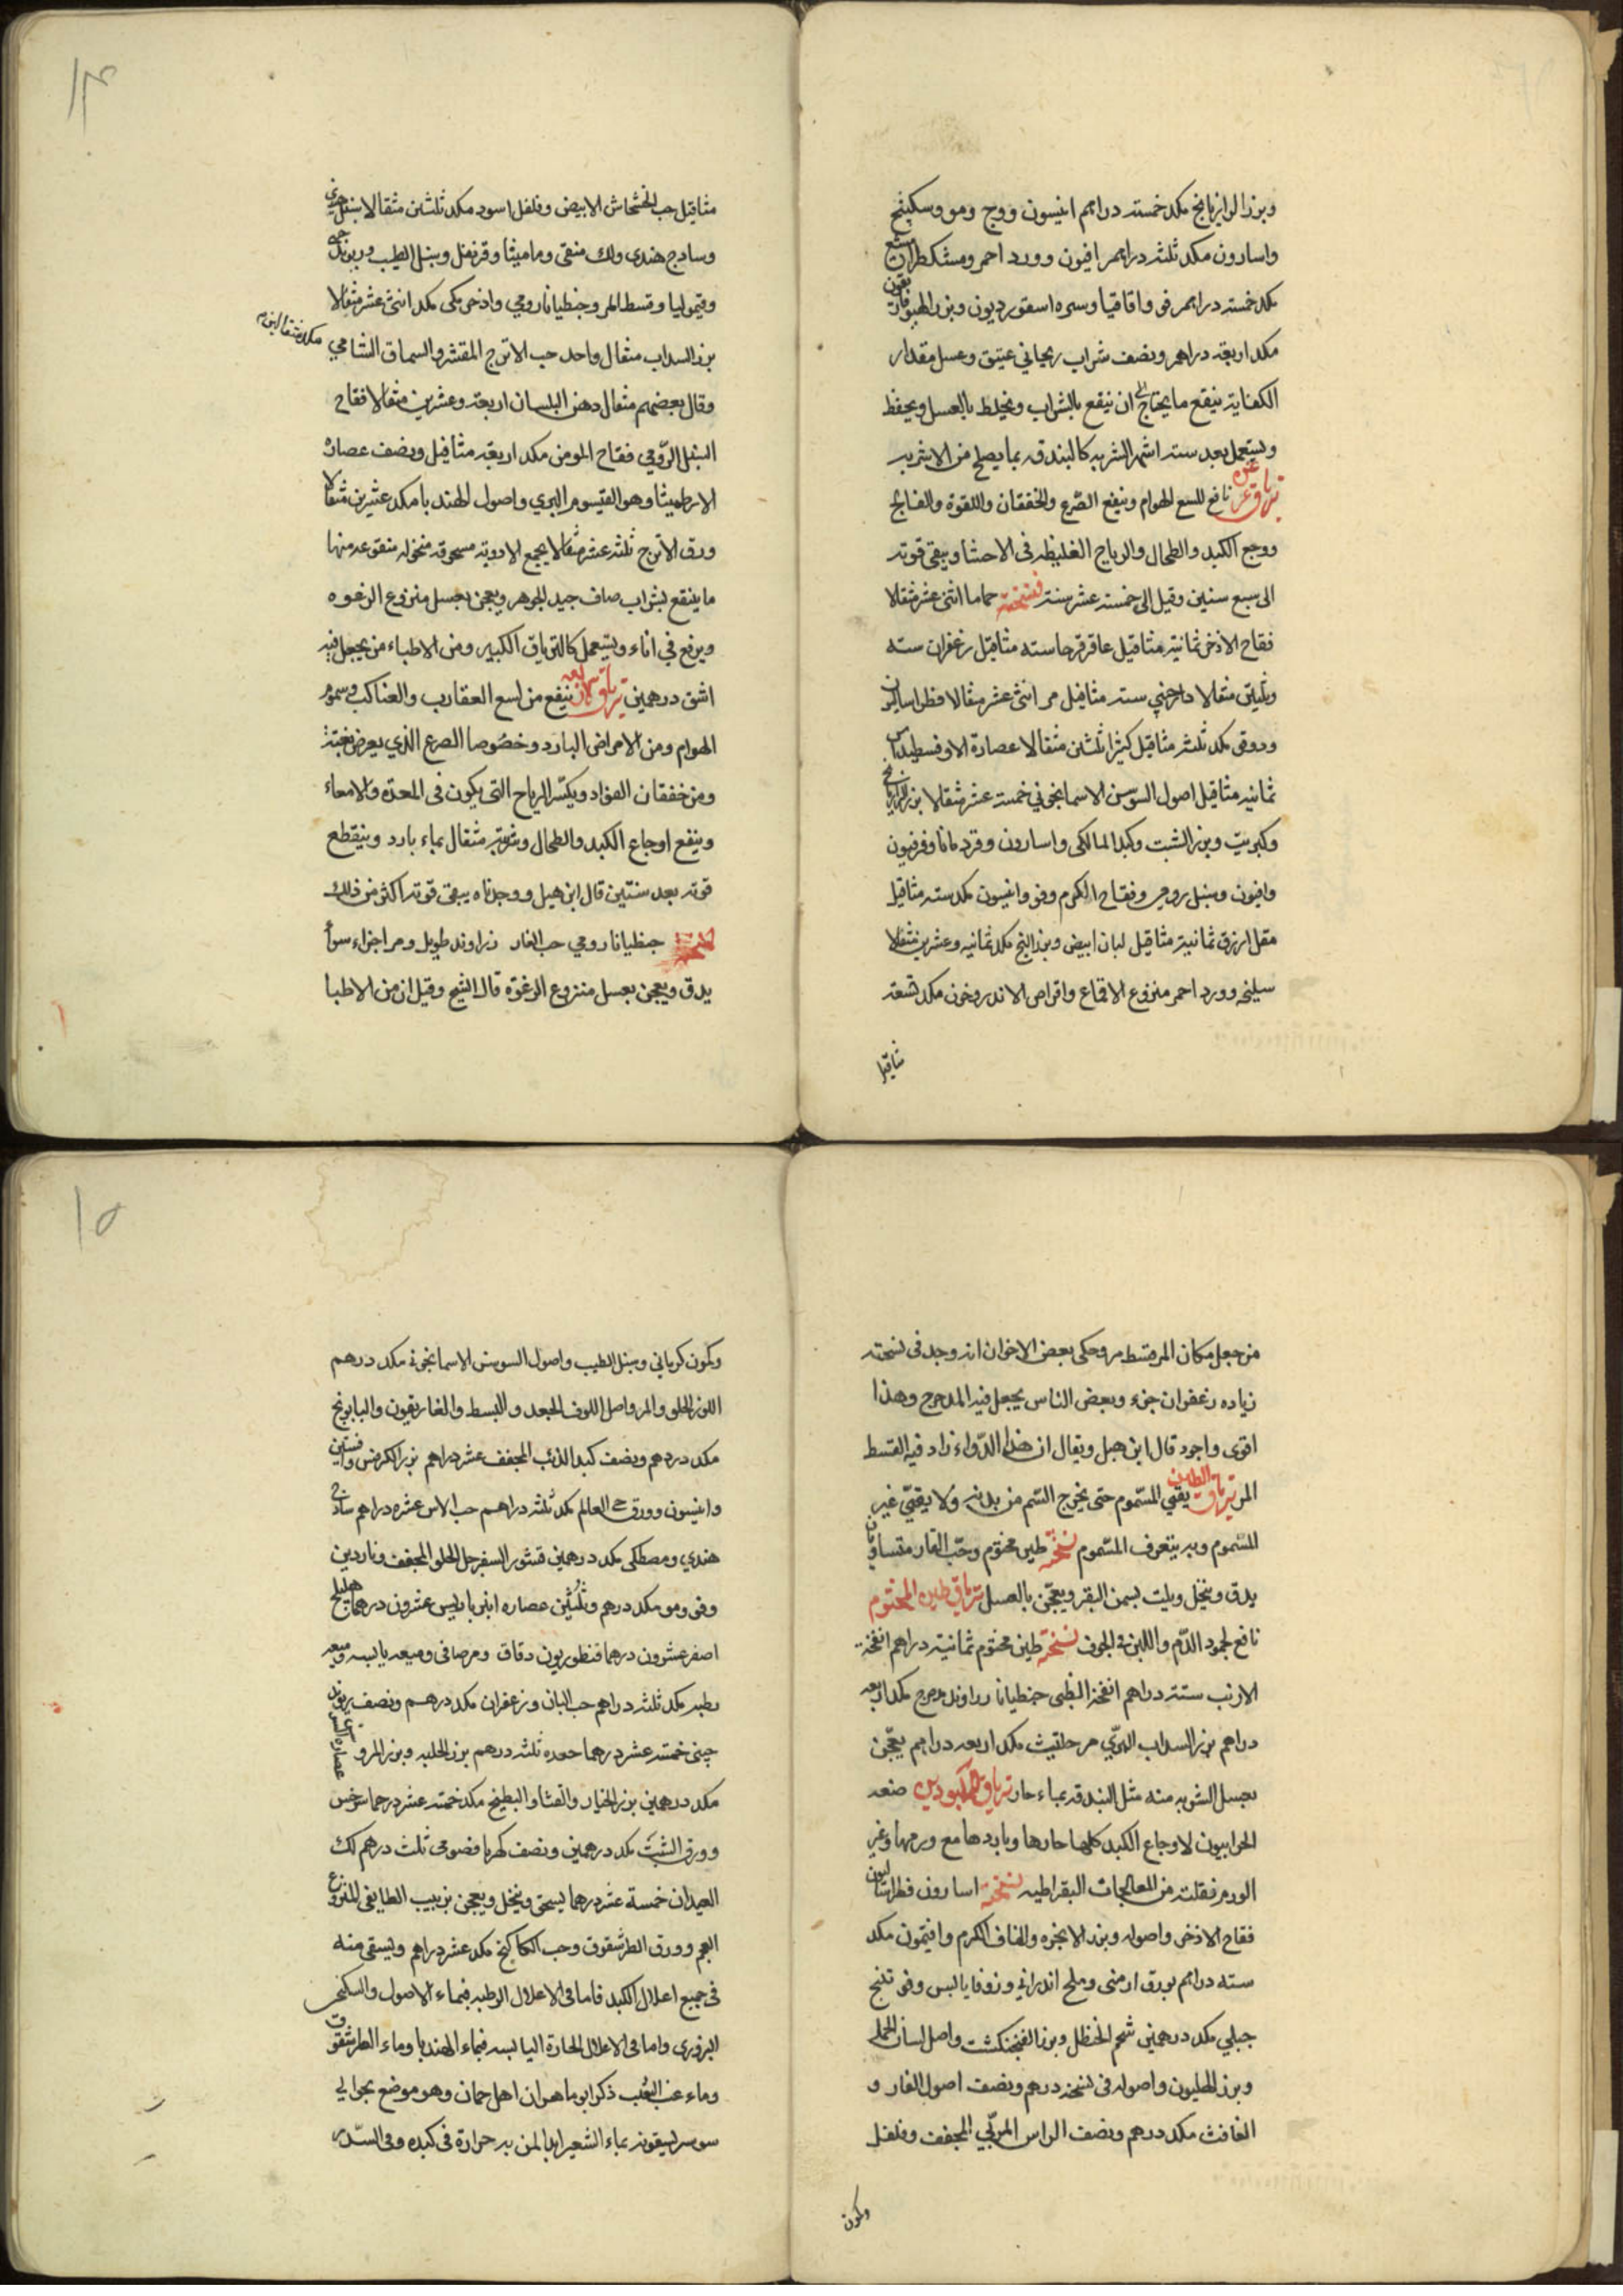 وبزر الرازيانج مكد خمسته دراهم انيسون ووج ومو وسكبينج
واسارون مكد ثلثه دراهم افيون وورد احمر ومشكطرامشيع
مكد خمسته دراهم فو واقاقيا وسره اسقورديون وبزر الهيوفاريقون
مكد اربعة دراهم ونصف شراب ريحاني عتيق وعسل مقدار
الكفاية ينقع ما يحتاج الى ان ينقع بالشراب ويخلط بالعسل ويحفظ
ويستعمل بعد ستة اشهر الشربه كالبندقه بما يصلح من الاشربه
ترياق عزره نافع للسع الهوام وينفع الصرع والخفقان واللقوة والفالج
ووجع الكبد والطحال والرياح الغليظه في الاحشا ويبقى قوته
الى سبع سنين وقيل الى خمسته عشر سنة نسخته حماما اثنى عشر مثقالا
فقاح الاذخر ثمانية مثاقيل عاقرقرحا سته مثاقيل زعفران سته
وثلثين مثقالا دارچيني سته مثاقيل مر اثنى عشر مثقالا فطراساليون
ودوقو مكد ثلثه مثاقيل كثيرا ثلثين مثقالا عصارة الاوفسطيداس
ثمانيه مثاقيل اصول السوسن الاسمانجوني خمسته عشر مثقالا بزر الرازيانج
وكبريت وبزر الشبت وكبد المالكى واسارون وقردمانا وفرفيون
وافيون وسنبل رومي وفقاح الكرم وفو وانيسون مكد سته مثاقيل
مقل ازرق ثمانية مثاقيل لبان ابيض وبزر البنج مكد ثمانيه وعشرين مثقالا
سليخه وورد احمر منزوع الاقماع واقراص الاندروخون مكد تسعة
مثاقيل
١٤
مثاقيل حب الخشخاش الابيض وفلفل اسود مكد ثلثين مثقالا سنبل هندي
وساذج هندى ولك منقى وماميثا وقرنفل وسنبل الطيب
وقيموليا وقسط المر وجنطيانا رومي واذخر مكى مكد اثنى عشر مثقالا
بزر السداب مثقال واحد حب الاترج المقشر والسماق الشامي
وقال بعضهم مثقال دهن البلسان اربعة وعشرين مثقالا فقاح
السنبل الرومي فقاح المومن مكد اربعة مثاقيل ونصف عصارة
الارطميثا وهو القيسوم البري واصول الهندبا مكد عشرين مثقالا
ورق الاترج ثلثه عشر مثقالا يجمع الادوية مسحوقه منخوله منقوعه منها
ما ينقع بشراب صاف جيد الجوهر ويعجن بعسل منزوع الرغوه
ويرفع في اناء ويستعمل كالترياق الكبير ومن الاطباء من يجعل فيه
اشق درهمين ترياق اربعه ينفع من لسع العقارب والعناكب وسموم
الهوام ومن الامراض البارد وخصوصا الصرع الذي يعرض بغتة
ومن خفقان الفواد ويكسر الرياح التى يكون فى المعدة والامعاء
وينفع اوجاع الكبد والطحال وشربته مثقال بماء بارد وينقطع
قوته بعد سنتين قال ابن هبل ووجدناه يبقى قوته اكثر من ذلك
نسخته جنطيانا رومي حب الغار زراوند طويل ومر اجزاء سواً
يدق ويعجن بعسل منزوع الرغوة قال الشيخ وقيل ان من الاطبا
من جعل مكان المر قسط مر وحكى بعض الاخوان انه وجد فى نسخته
زياده زعفران جزء وبعض الناس يجعل فيه المدحرج وهذا
اقوى واجود قال ابن هبل ويقال ان هذا الدواء زاد فيه القسط
المر ترياق الطين يقيّ المسموم حتى يخرج السم من بدنه ولا يقيّ غير
المسموم وبه يتعرف المسموم نسخته طين مختوم وحب الغار متساويان
يدق وينخل ويلت بسمن البقر ويعجن بالعسل ترياق طين المختوم
نافع لجمود الدم واللبن فى الجوف نسخته طين مختوم ثمانية دراهم انفخة
الارنب ستة دراهم انفخة الظبى جنطيانا زراوند مدحرج مكد اربعه
دراهم بزر السداب البري مر حلتيت مكد اربعه دراهم يعجن
بعسل الشربه منه مثل البندقه بماء حار ترياق الكبودين صنعه
الحرابيون لاوجاع الكبد كلها حارها وباردها مع ورمها وغير
الورم فنقلته من المعالجات البقراطيه نسخته اسارون فطراساليون
فقاح الاذخر واصوله وبزر الانجره والفاف الكرم وافتيمون مكد
سته دراهم بورق ارمنى وملح اندراني وزوفا يابس وفوتنج
جبلي مكد درهمين شحم الحنظل وبزر الفنجنكشت واصل لسان الحمل
وبزر الهليون واصوله فى نسخة درهم ونصف اصول الغار و
الغافث مكد درهم ونصف الراس المربي المجفف وفلفل
وكمون
١٥
وكمون كرماني وسنبل الطيب واصول السوسن الاسمانجونى مكد درهم
اللوز الحلو والمر واصل اللوف الجعد والبسط والغاريقون والبابونج
مكد درهم ونصف كبد الذئب المجفف عشر دراهم بزر الكرفس وافسنتين
وانيسون وورق حى العالم مكد ثلثه دراهم حب الاس عشره دراهم ساذج
هندي ومصطكى مكد درهمين قشور السفرجل الحلو المجفف وناردين
وفو ومو مكد درهم وثلثين عصاره انبرباريس عشرون درهما هليلج
اصفر عشرون درهما قنطوريون دقاق ومر صافى وميعه يابسه وميعه
رطبه مكد ثلثه دراهم حب البان وزعفران مكد درهم ونصف ريوند
چينى خمسته عشر درهما جعده ثلثه درهم بزر الحلبه وبزر المرو
مكد درهمين بزر الخيار والقثا والبطيخ مكد خمسته عشر درهما سرخس
وورق الشبت مكد درهمين ونصف كهربا فصوصى ثلث درهم لك
العيدان خمسة عشر درهما يسحق وينخل ويعجن بزبيب الطايفى المنزوع
العجم وورق الطرشقوق وحب الكاكنج مكد عشر دراهم ويسقى منه
فى جميع اعلال الكبد فاما فى الاعلال الرطبه فبماء الاصول والسكنجبين
البزورى واما فى الاعلال الحارة اليابسه فبماء الهندبا وماء الطرشقوق
وماء عنب الثعلب ذكر ابو ماهر ان اهل حمان وهو موضع بحوالي
سوسر يسقونه بماء الشعير ابدا لمن به حرارة فى كبده وفى السدر